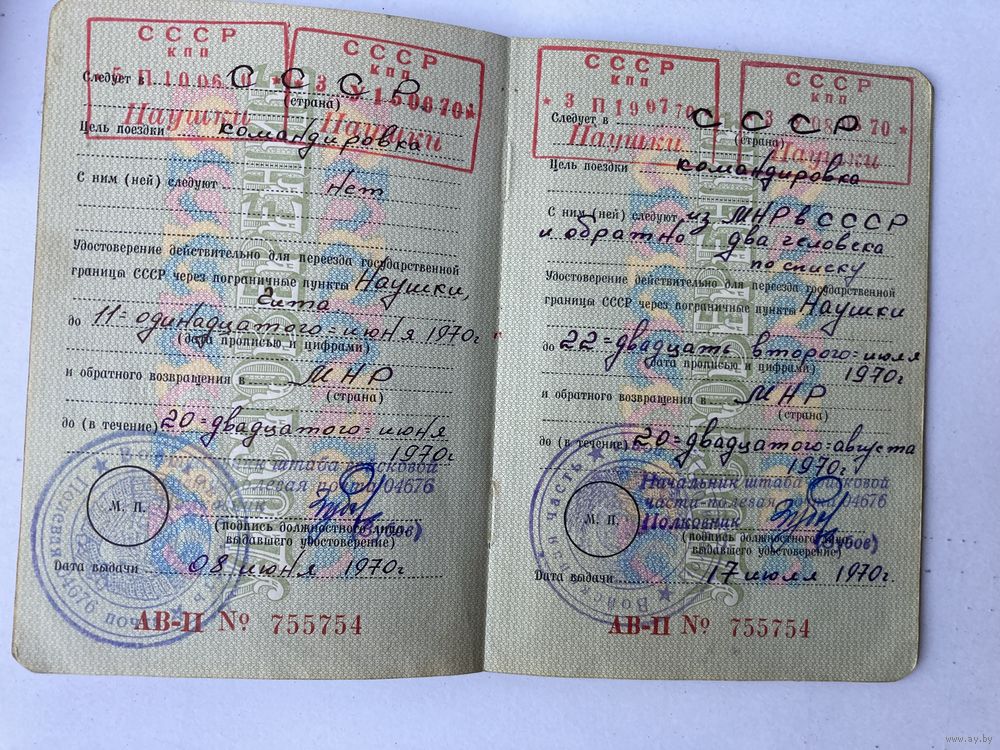 СССР
КПП
5 П 1006
Наушки
СССР
КПП
3 1506 70
Наушки
Следует в СССР
(страна)
Цель поездки командировка
С ним (ней) следуют нет
Удостоверение действительно для переезда государственной
границы СССР через пограничные пункты Наушки,
Чита
до 11 = одинадцатого = июня 1970г
(дата прописью и цифрами)
и обратного возвращения в МНР
(страна)
до (в течение) 20 = двадцатого = июня
1970г
штаба
04676
М. П.
(подпись должностного лица,
выдавшего удостоверение)
Дата выдачи 08 июня 1970г
АВ-II № 755754
СССР
КПП
3 П 1907 70
Наушки
СССР
КПП
3 08 70
Наушки
Следует в СССР
(страна)
Цель поездки командировка
С ним (ней) следуют из МНР в СССР
и обратно два человека
по списку
Удостоверение действительно для переезда государственной
границы СССР через пограничные пункты Наушки
до 22 = двадцать второго = июля
(дата прописью и цифрами)
1970г
и обратного возвращения в МНР
(страна)
до (в течение) 20 = двадцатого = августа
1970г
Начальник штаба войсковой
части-полевая 04676
Полковник (Зубов)
М. П.
(подпись должностного лица,
выдавшего удостоверение)
Дата выдачи 17 июля 1970г
АВ-II № 755754
www.ay.by